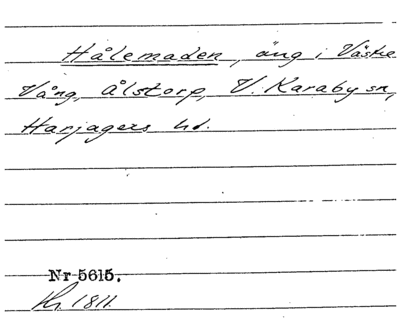 Hålemaden, äng i Västre
Vång, Ålstorp, V. Karaby sn,
Harjagers hd.
Nr 5615.
1811.